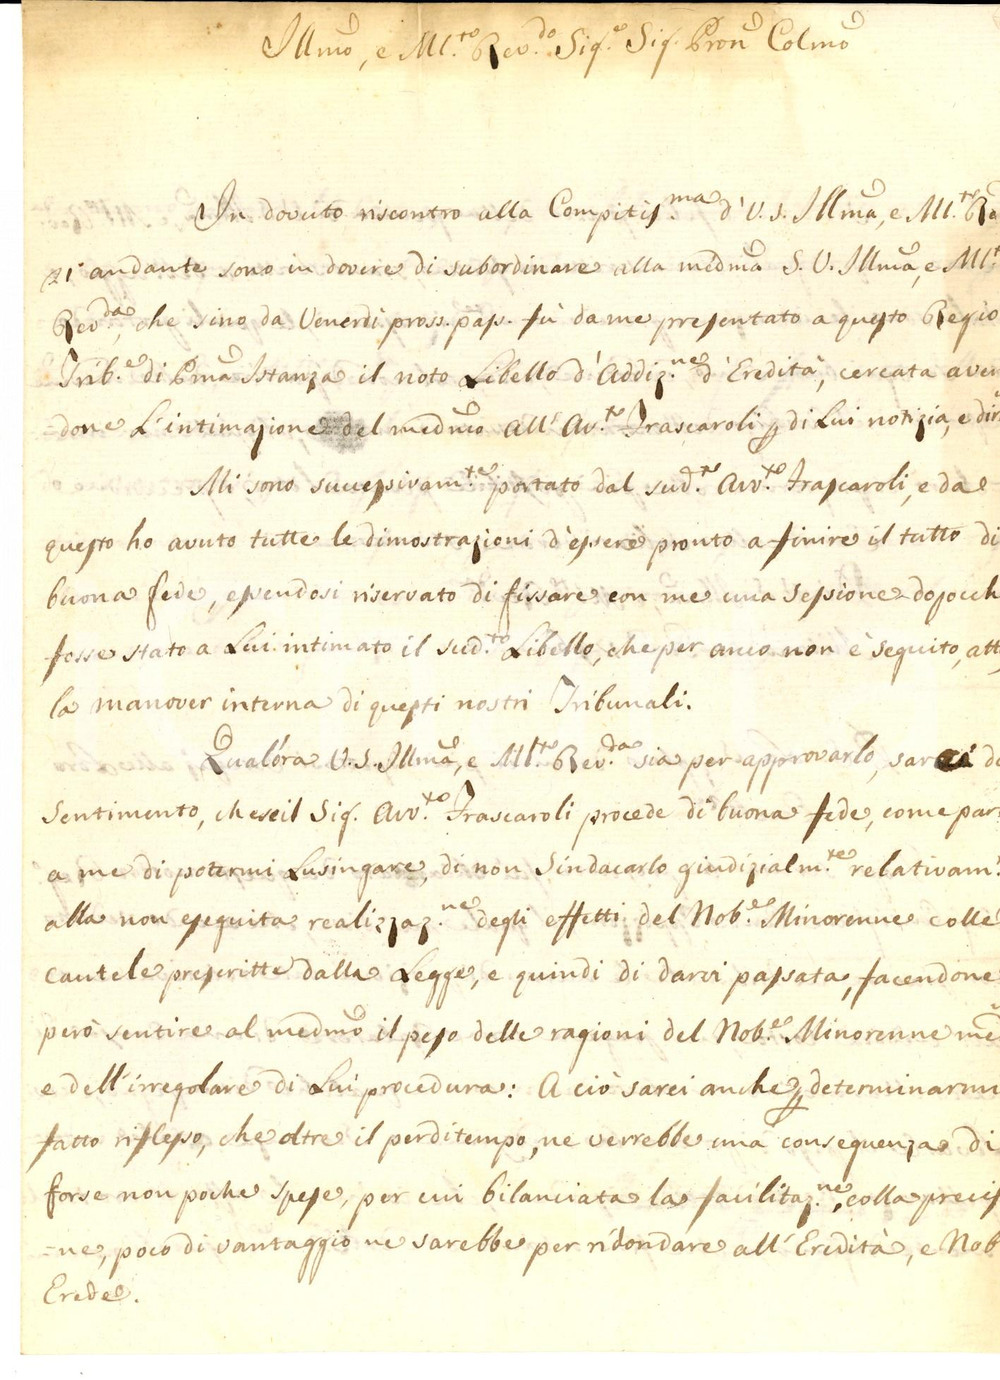 Illmo, e Ml.to Rev.do Sig.e Sig. Pron Colmo
In dovuto riscontro alla Compitis.ma d'V. S. Illma, e Ml.to Re
21 andante sono in dovere di subordinare alla medma S. V. Illma, e Ml.t
Rev.da, che sino da Venerdì pross. pass. fù da me presentato a questo Regio
Trib.e di Pma Istanza il noto Libello d'Addiz.ne d'Eredità, cercata aven
=done L'intimazione del medmo all'Av.to Frascaroli p di Lui notizia, e dir
Mi sono successivam.te portato dal sud.to Avv.to Frascaroli, e da
questo ho avuto tutte le dimostrazioni d'essere pronto a finire il tutto di
buona fede, essendosi riservato di fissare con me una Sessione dopocch
fosse stato a Lui intimato il sud.to Libello, che per anco non è seguito, att
la manover interna di questi nostri Tribunali.
Qualora V. S. Illma, e Ml.to Rev.da sia per approvarlo, sarei di
Sentimento, che se il Sig. Avv.to Frascaroli procede di buona fede, come par
a me di potermi Lusingare, di non Sindacarlo giudizialm.te relativam.
alla non eseguita realizzaz.ne degli effetti del Nob.e Minorenne colle
cautele prescritte dalla Legge, e quindi di darvi passata, facendone
però sentire al medmo il peso delle ragioni del Nob.e Minorenne me
e dell'irregolare di Lui procedura: A ciò sarei anche p determinarmi
fatto riflesso, che oltre il perditempo, ne verrebbe una conseguenza di
forse non poche spese, per cui bilanciata la facilitaz.ne, colla precis
=ne, poco di vantaggio ne sarebbe per ridondare all'Eredità, e Nob
Erede.